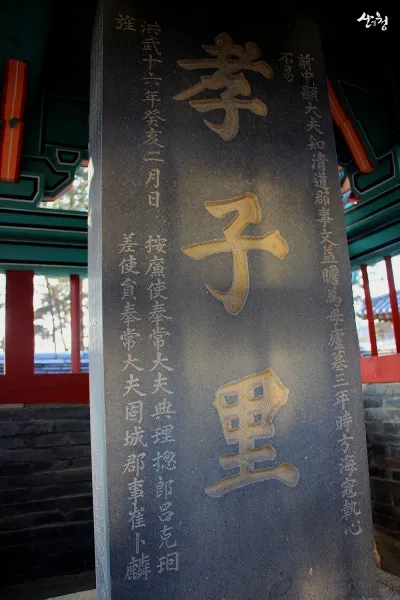 산청
前中顯大夫知清道郡事文益瞻爲母廬墓三年時方海寇執心
不易
孝子里
洪武十六年癸亥二月日 按廉使奉常大夫典理揔郎呂克珚
旌 差使員奉常大夫固城郡事崔卜麟